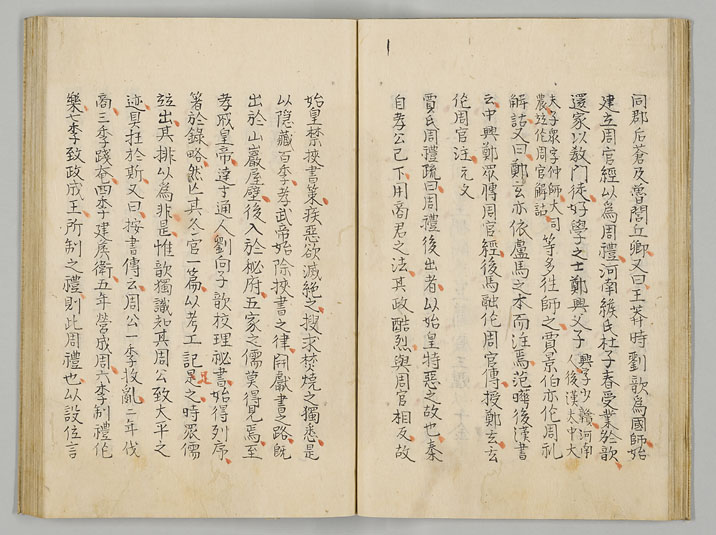 同郡后蒼及魯閭丘卿又曰王莽時劉歆為國師始
建立周官經以為周禮河南緱氏杜子春受業於歆
還家以教門徒好學之士鄭興父子興字少贛河南人後漢太中大
夫子衆字仲師大司農並作周官解詁等多往師之賈景伯亦作周礼
解詁又曰鄭玄亦依盧馬之本而注焉范曄後漢書
云中興鄭衆傳周官經後馬融作周官傳授鄭玄玄
作周官注元文
賈氏周禮疏曰周禮後出者以始皇特惡之故也秦
自孝公已下用商君之法其政酷烈與周官相反故
始皇禁挾書策疾惡欲滅絕之搜求焚燒之獨悉是
以隱藏百季孝武帝始除挾書之律開獻書之路既
出於山巖屋壁後入於秘府五家之儒莫得見焉至
孝成皇帝達才通人劉向子歆校理秘書始得列序
著於錄略然亡其冬官一篇以考工記足之時衆儒
並出其排以為非是惟歆獨識知其周公致太平之
迹具在於斯又曰按書傳云周公一季救亂二年伐
商三季踐奄四季建侯衛五年營成周六季制禮作
樂七季致政成王所制之禮則此周禮也以設位言